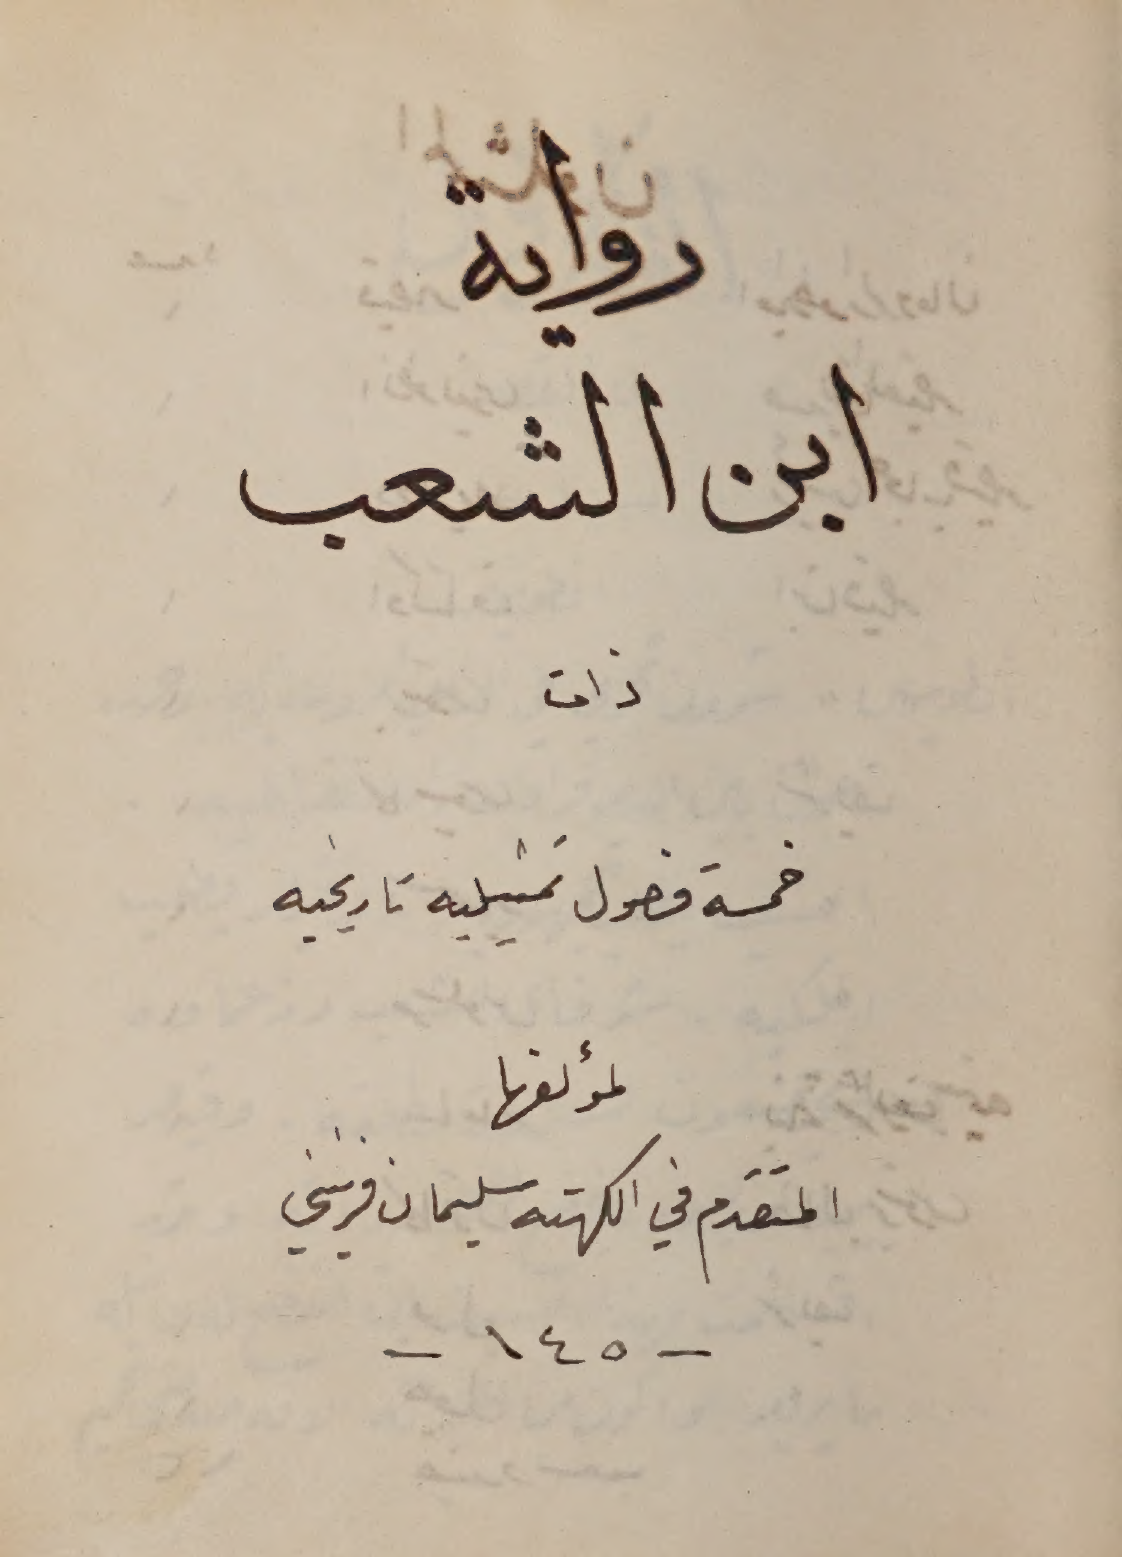 رواية
ابن الشعب
ذات
خمسة فصول تمثيليه تاريخيه
لمؤلفها
المتقدم في الكهنه سليمان فرنيني
- ١٤٥ -